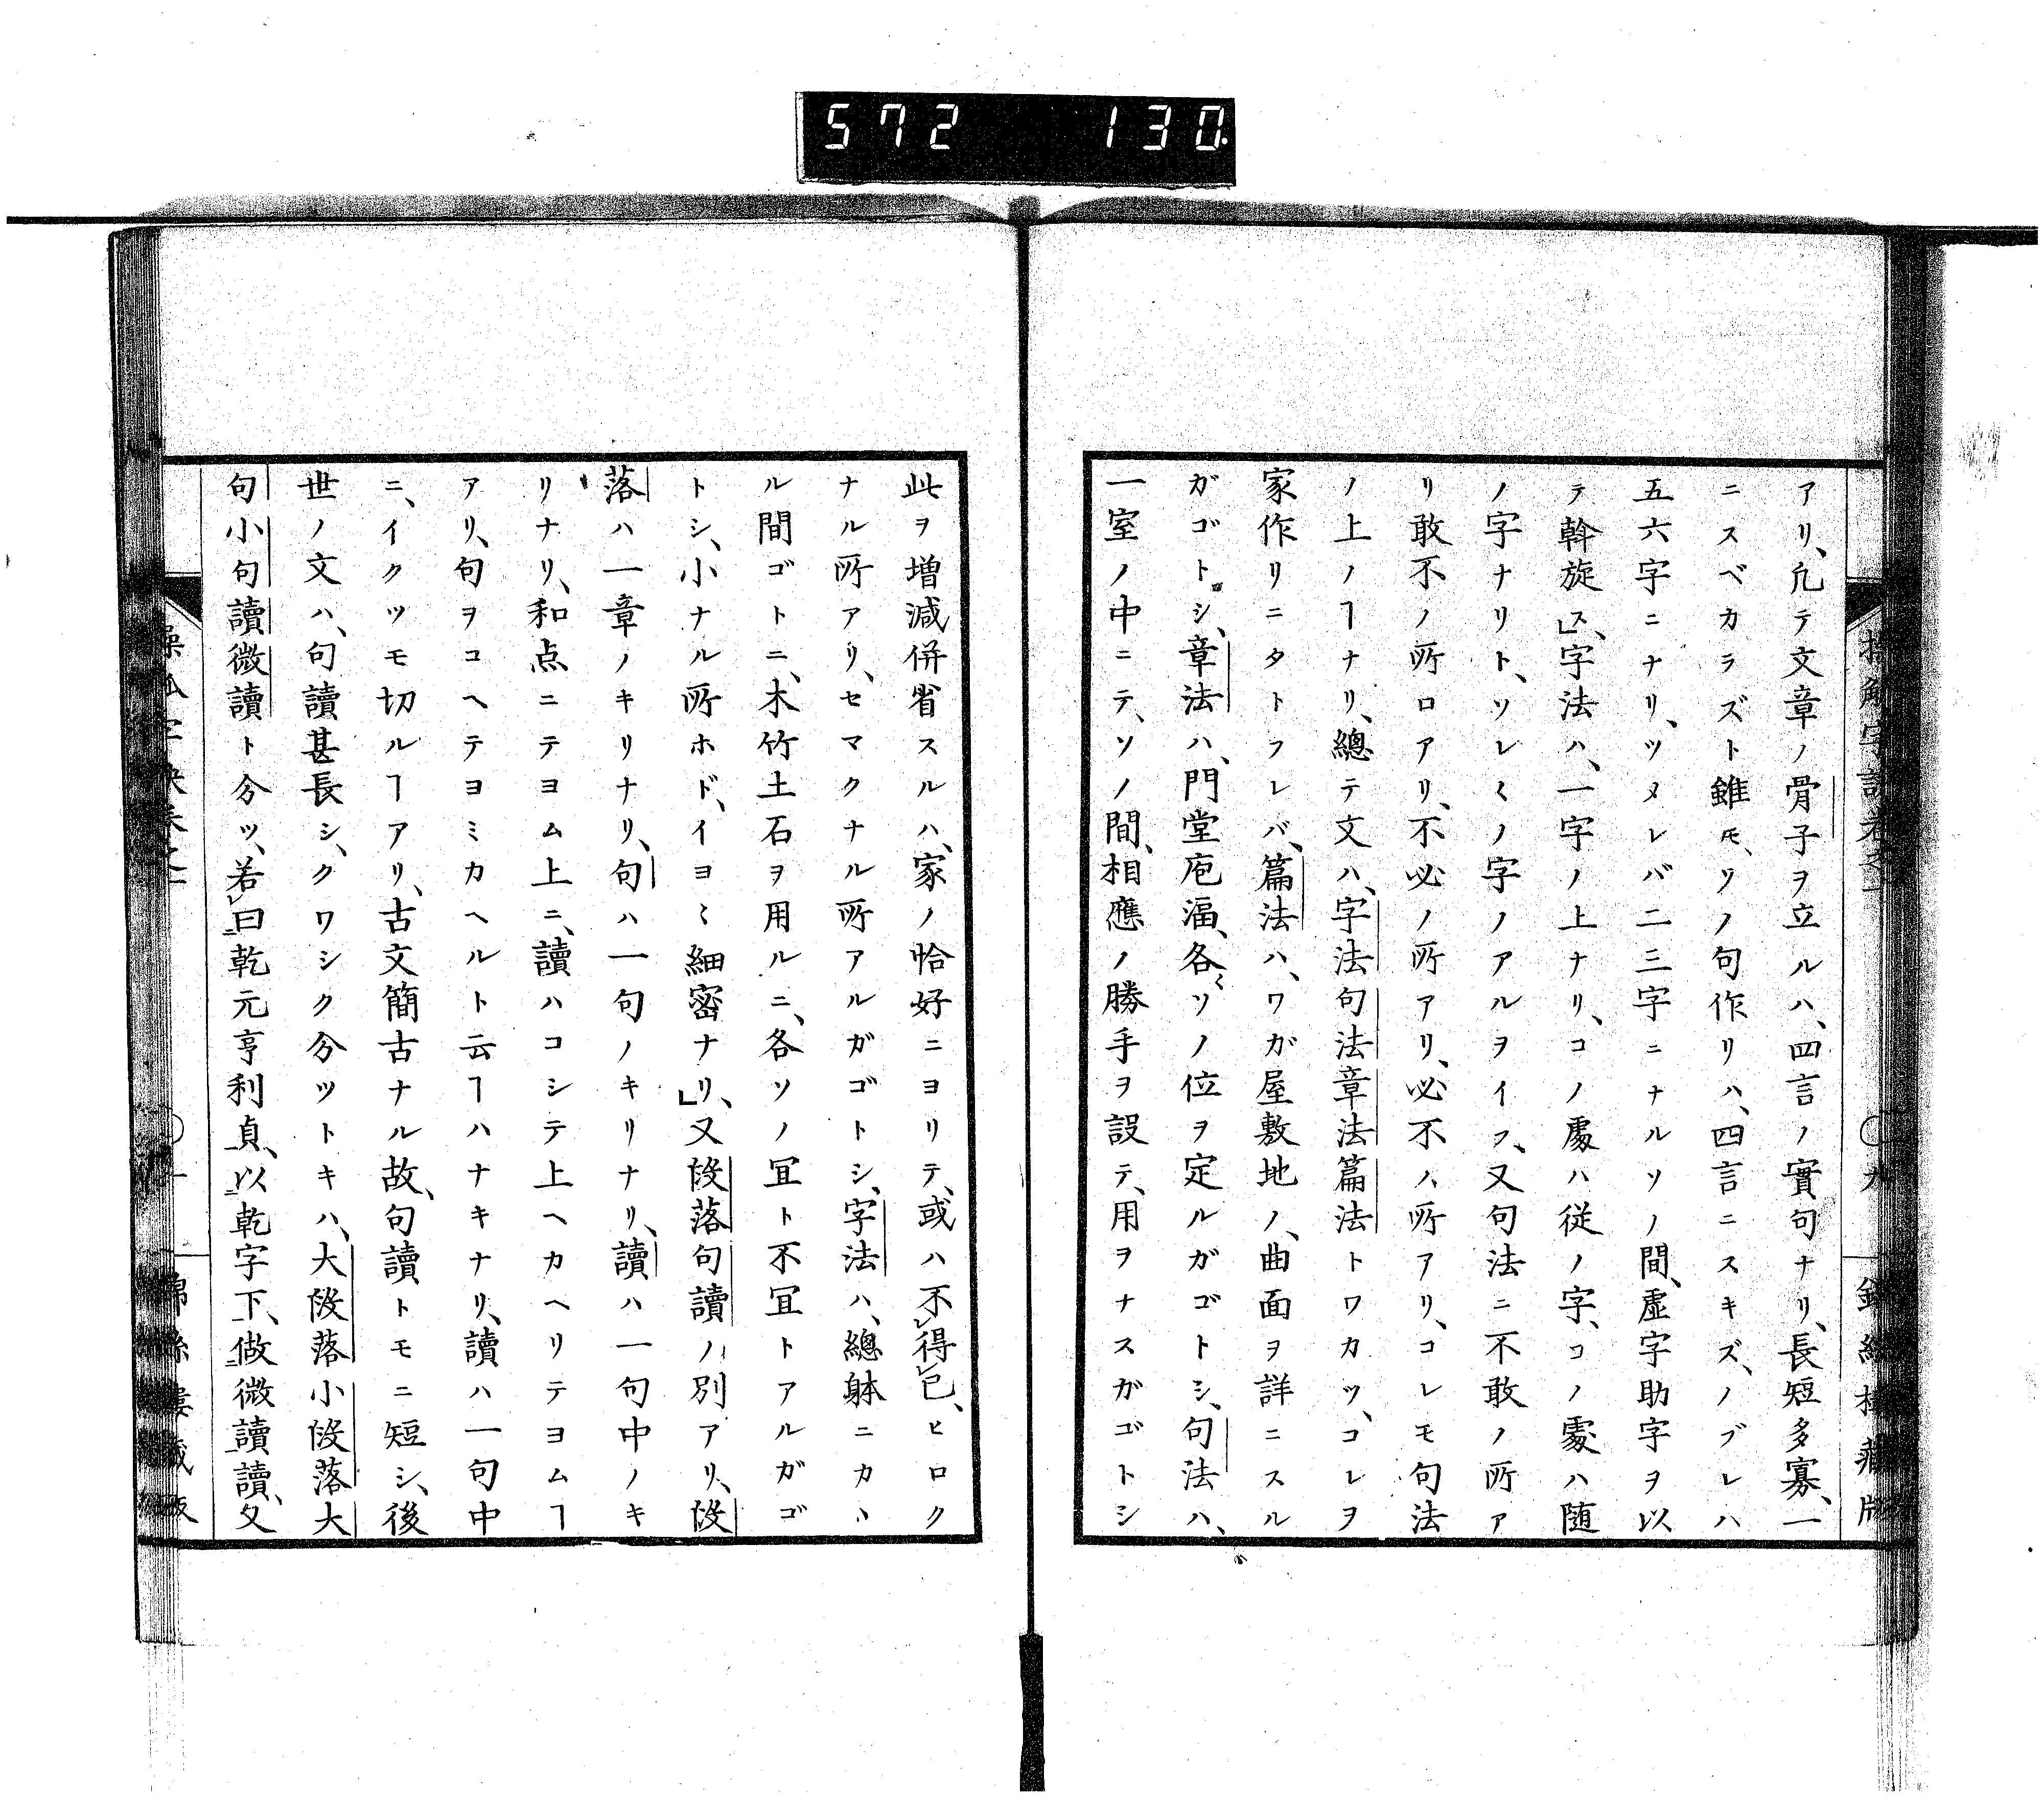 572 130
アリ、凢テ文章ノ骨子ヲ立ルハ、四言ノ實句ナリ、長短多寡、一
ニスベカラズト雖𪜈、ソノ句作リハ、四言ニスキズ、ノブレハ
五六字ニナリ、ツヌレバ二三字ニナルソノ間、虛字助字ヲ以
テ斡旋ス」、字法ハ、一字ノ上ナリ、コノ處ハ従ノ字、コノ處ハ随
ノ字ナリト、ソレ〳〵ノ字ノアルヲイフ、又句法ニ不敢ノ所ア
リ敢不ノ所ロアリ、不必ノ所アリ、必不ノ所アリ、コレモ句法
ノ上ノヿナリ、總テ文ハ、字法句法章法篇法トワカツ、コレヲ
家作リニタトフレバ、篇法ハ、ワガ屋敷地ノ、曲面ヲ詳ニスル
ガゴトシ、章法ハ、門堂庖湢、各〻ソノ位ヲ定ルガゴトシ、句法ハ、
一室ノ中ニテ、ソノ間、相應ノ勝手ヲ設テ、用ヲナスガゴトシ
此ヲ増減併省スルハ、家ノ恰好ニヨリテ、或ハ不㆑得㆑已、ヒロク
ナル所アリ、セマクナル所アルガゴトシ、字法ハ、總躰ニカヽ
ル間ゴトニ、木竹土石ヲ用ルニ、各ソノ冝ト不冝トアルガゴ
トシ、小ナル所ホド、イヨ〻細密ナリ」、又段落句讀ノ別アリ、段
落ハ一章ノキリナリ、句ハ一句ノキリナリ、讀ハ一句中ノキ
リナリ、和点ニテヨム上ニ、讀ハコシテ上ヘカヘリテヨムヿ
アリ、句ヲコヘテヨミカヘルト云ヿハナキナリ、讀ハ一句中
ニ、イクツモ切ルヿアリ、古文簡古ナル故、句讀トモニ短シ、後
世ノ文ハ、句讀甚長シ、クワシク分ツトキハ、大段落小段落大
句小句讀微讀ト分ツ、若㆑曰㆓乾元亨利貞㆒、以㆓乾字下㆒、做㆓微讀讀㆒、又